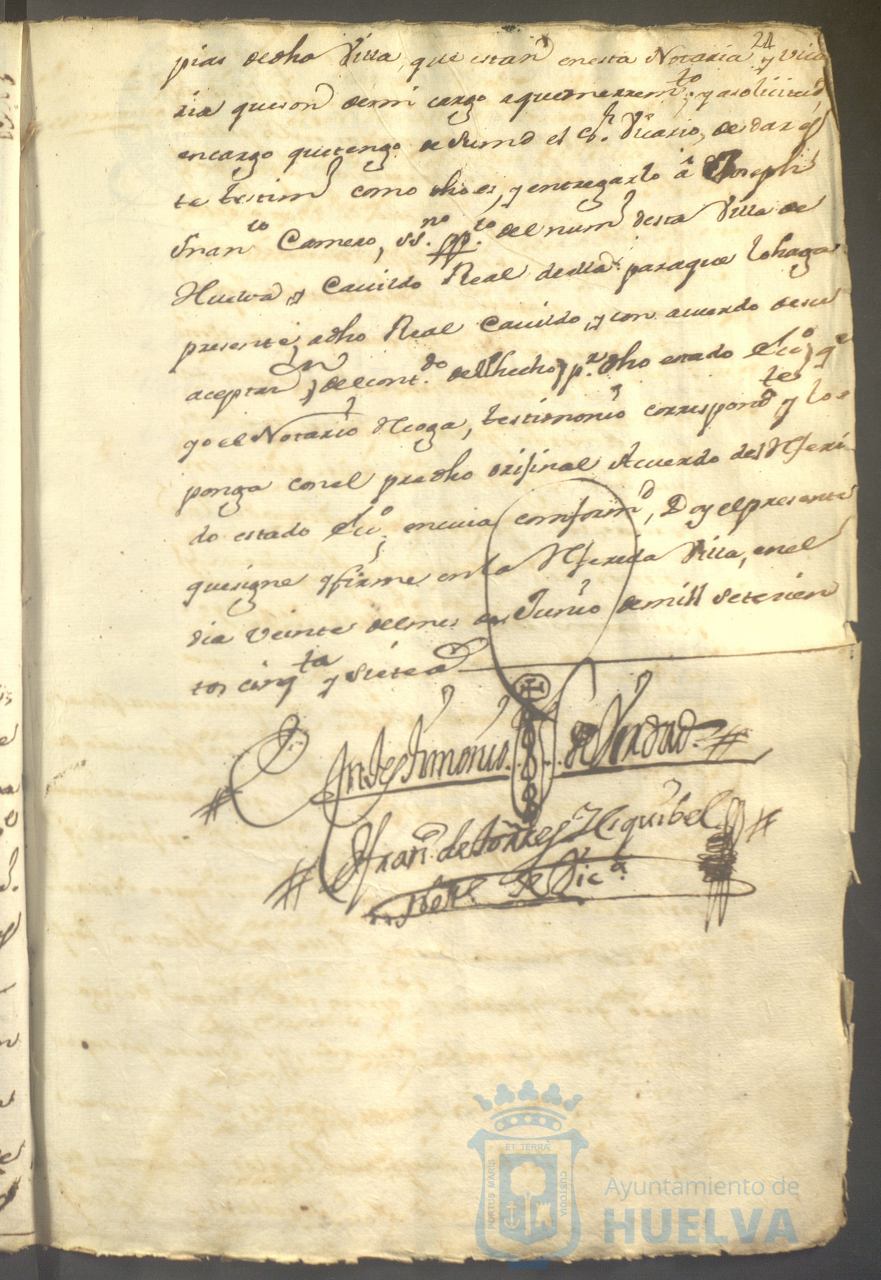 24
pias dedha Villa, que estan enesta Notaria y Vica
ria queson demi cargo aquemerremto; y asolicitud
encargo quetengo desumd el Sr. Vicario, de dar es
te testimo como dho es, y entregarlo â Joseph
Franco Camero, ssno ppco del numo desta Villa de
Huelva, y Cavildo Real deella, paraque lo haga
presente, adho Real Cavildo, y con acuerdo desu
aceptan, delcontdo del hecho, pr. dho estado Ecco, qe
yo el Notario Hcoga, testimonio correspondtes y lo
ponga conel predho original Acuerdo del Referi
do estado Ecco; encuia conformd, Doy elpresente
quesigne yfirme en la Refereda Villa, enel
dia veinte delmes de Junio demill setecien
tos cinqta y siete as
En testimonio de Verdad
Frano de Torres Esquibel
Note. de Vica
ET TERRÆ
PORTUS MARIS
CUSTODIA
Ayuntamiento de
HUELVA